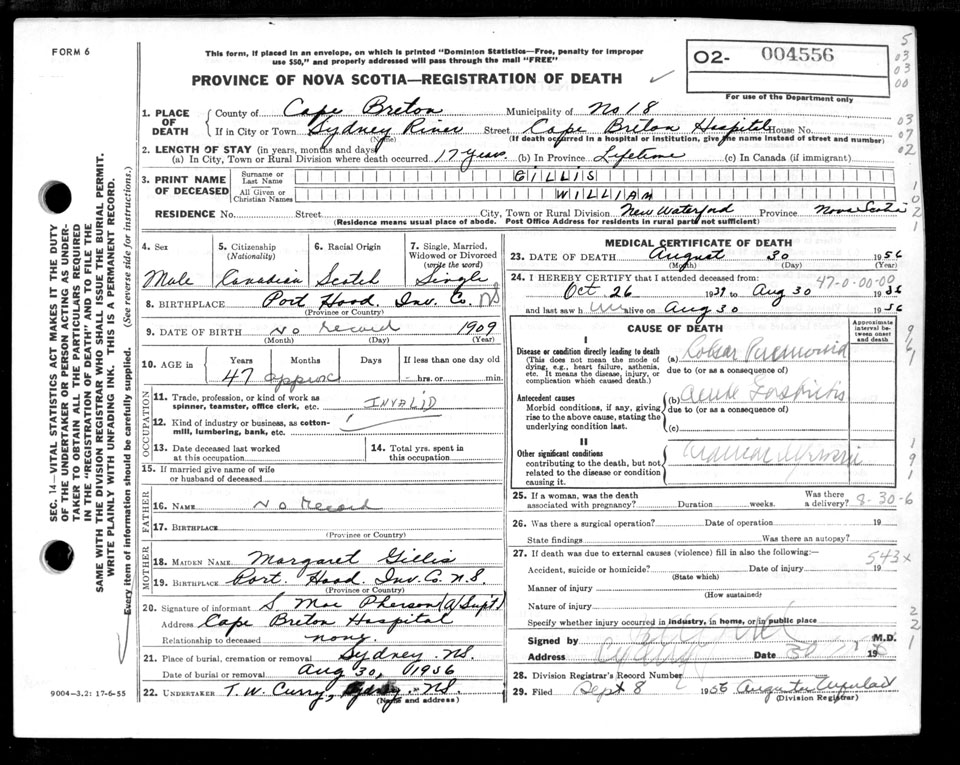 FORM 6
This form, if placed in an envelope, on which is printed "Dominion Statistics—Free, penalty for improper
use $50," and properly addressed will pass through the mail "FREE"
PROVINCE OF NOVA SCOTIA—REGISTRATION OF DEATH
02- 004556
For use of the Department only
5
03
03
00
03
07
02
1
02
1
9/61
191
2
2
1
SEC. 14—VITAL STATISTICS ACT MAKES IT THE DUTY
OF THE UNDERTAKER OR PERSON ACTING AS UNDER-
TAKER TO OBTAIN ALL THE PARTICULARS REQUIRED
IN THE "REGISTRATION OF DEATH" AND TO FILE THE
SAME WITH THE DIVISION REGISTRAR WHO SHALL ISSUE THE BURIAL PERMIT.
WRITE PLAINLY WITH UNFADING INK. THIS IS A PERMANENT RECORD.
Every item of information should be carefully supplied. (See reverse side for instructions.)
1. PLACE OF DEATH
County of Cape Breton Municipality of No 18
If in City or Town Sydney River Street Cape Breton Hospital House No.
(Name) (If death occurred in a hospital or institution, give the name instead of street and number)
2. LENGTH OF STAY (in years, months and days)
(a) In City, Town or Rural Division where death occurred 17 years. (b) In Province Lifetime (c) In Canada (if immigrant)
3. PRINT NAME OF DECEASED
Surname or Last Name GILLIS
All Given or Christian Names WILLIAM
RESIDENCE No. Street City, Town or Rural Division New Waterford Province Nova Scotia
(Residence means usual place of abode. Post Office Address for residents in rural parts not sufficient)
4. Sex 5. Citizenship (Nationality) 6. Racial Origin 7. Single, Married, Widowed or Divorced (write the word)
Male Canadian Scotch Single
8. BIRTHPLACE Port Hood Inv. Co. NS
(Province or Country)
9. DATE OF BIRTH No record 1909
(Month) (Day) (Year)
10. AGE in Years Months Days If less than one day old
47 approx hrs. or min.
OCCUPATION
11. Trade, profession, or kind of work as
spinner, teamster, office clerk, etc. INVALID
12. Kind of industry or business, as cotton-
mill, lumbering, bank, etc.
13. Date deceased last worked
at this occupation
14. Total yrs. spent in
this occupation
15. If married give name of wife
or husband of deceased
FATHER
16. NAME No record
17. BIRTHPLACE
(Province or Country)
MOTHER
18. MAIDEN NAME Margaret Gillis
19. BIRTHPLACE Port. Hood Inv. Co. N.S.
(Province or Country)
20. Signature of informant S. MacPherson (A/Supt)
Address Cape Breton Hospital
Relationship to deceased none.
21. Place of burial, cremation or removal Sydney NS.
Date of burial or removal Aug 30, 1956
22. UNDERTAKER T. W. Curry, Sydney. NS.
(Name and address)
9004-3.2: 17-6-55
MEDICAL CERTIFICATE OF DEATH
23. DATE OF DEATH August 30 1956
(Month) (Day) (Year)
24. I HEREBY CERTIFY that I attended deceased from: 47-0-00-00
Oct 26 1939 to Aug 30 1956
and last saw him alive on Aug 30 1956
CAUSE OF DEATH
Approximate interval between onset and death
I
Disease or condition directly leading to death
(This does not mean the mode of
dying, e.g., heart failure, asthenia,
etc. It means the disease, injury, or
complication which caused death.)
(a) Lobar Pneumonia
due to (or as a consequence of)
Antecedent causes
Morbid conditions, if any, giving
rise to the above cause, stating the
underlying condition last.
(b) acute Gastritis
due to (or as a consequence of)
(c)
II
Other significant conditions
contributing to the death, but not
related to the disease or condition
causing it.
25. If a woman, was the death
associated with pregnancy? Duration weeks. Was there
a delivery? 8-30-6
26. Was there a surgical operation? Date of operation 19
State findings Was there an autopsy?
27. If death was due to external causes (violence) fill in also the following:
543x
Accident, suicide or homicide? Date of injury 19
(State which)
Manner of injury
(How sustained)
Nature of injury
Specify whether injury occurred in industry, in home, or in public place
Signed by M.D.
Address Sydney Date 30 19
28. Division Registrar's Record Number
29. Filed Sept 8 1956
(Division Registrar)